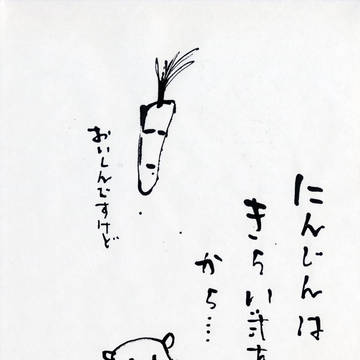 にんじんは
きらい
から....
おいしんですけど